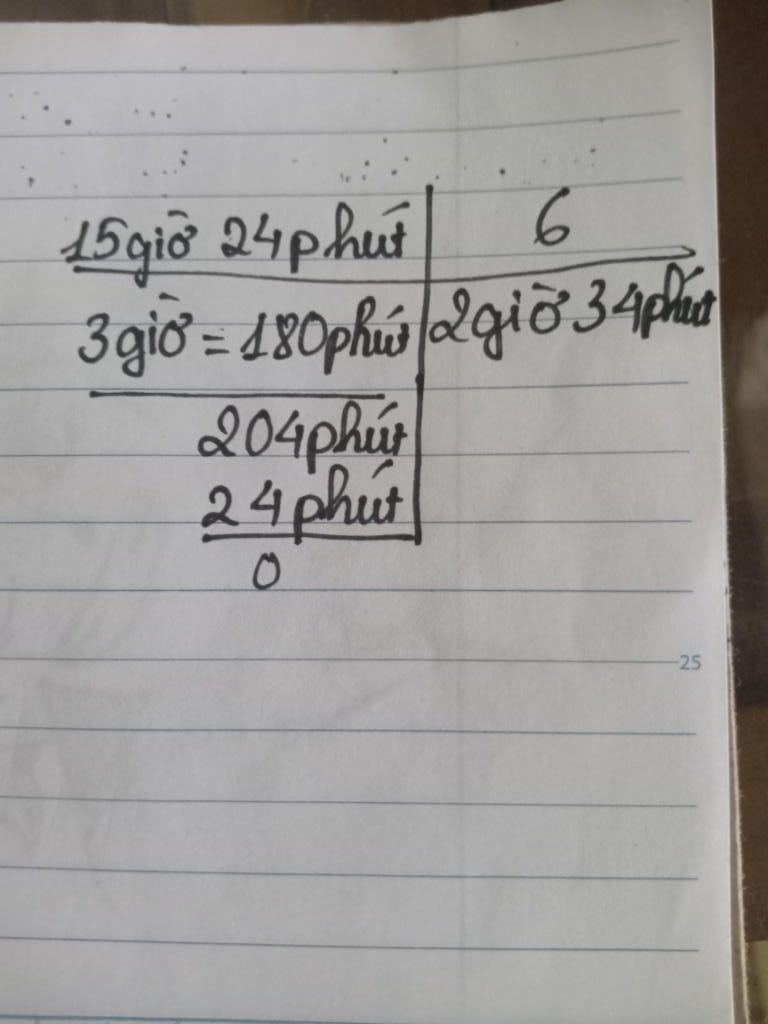 15giờ 24phút 6
3giờ = 180phút 2giờ 34phút
204phút
24phút
0
25